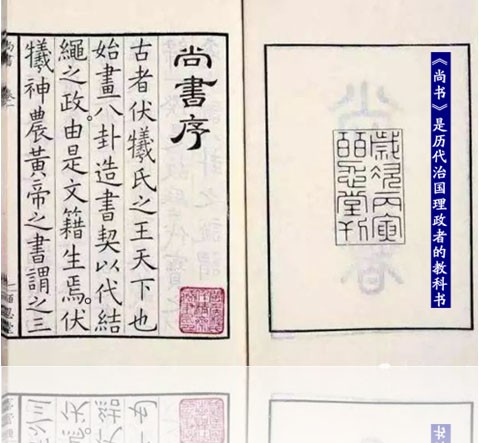 《尚书》是历代治国理政者的教科书
歲次丙寅
皕忍堂刊
尚書序
古者伏犧氏之王天下也
始畫八卦造書契以代結
繩之政。由是文籍生焉。伏
犧神農黃帝之書謂之三